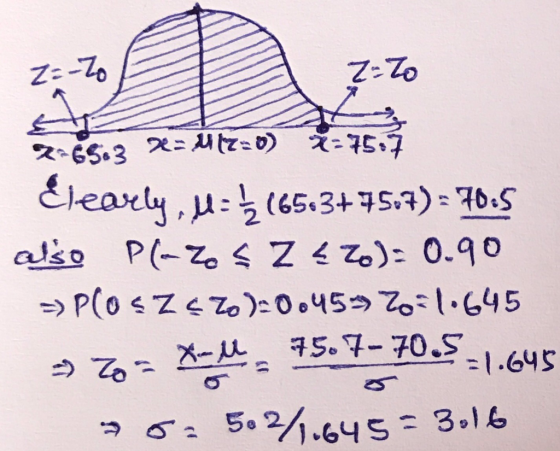 Z=-Z₀ Z=Z₀
x=65.3 x=μ(z=0) x=75.7
Clearly, μ=½(65.3+75.7)=70.5
also P(-Z₀ ≤ Z ≤ Z₀)=0.90
⇒P(0≤Z≤Z₀)=0.45⇒Z₀=1.645
⇒ Z₀= (x-μ)/σ = (75.7-70.5)/σ =1.645
⇒ σ= 5.2/1.645 = 3.16